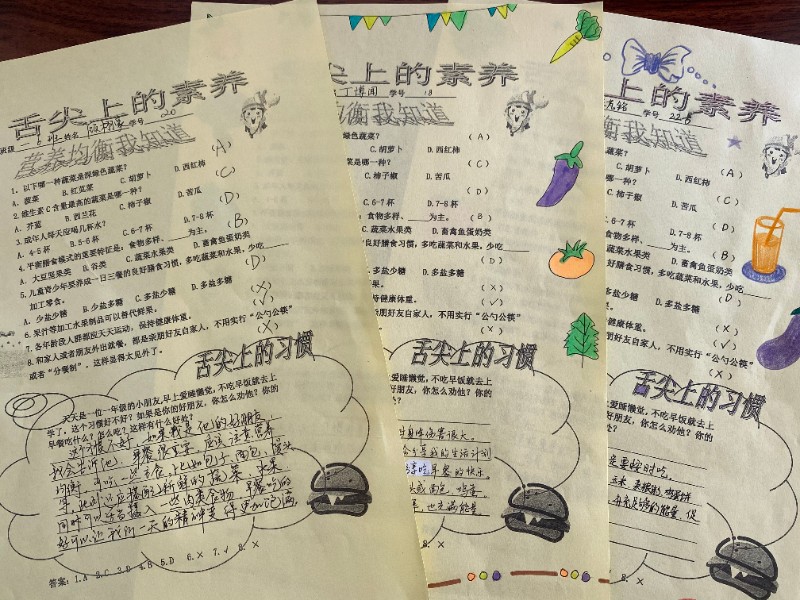 舌尖上的素养
班级 一.6班 姓名 学号 20
营养均衡我知道
1. 以下哪一种蔬菜是深绿色蔬菜? (A)
A. 菠菜 B. 红苋菜 C. 胡萝卜 D. 西红柿
2. 维生素 C 含量最高的蔬菜是哪一种? (C)
A. 芥蓝 B. 西兰花 C. 柿子椒 D. 苦瓜
3. 成年人每天应喝几杯水? (D)
A. 4-5 杯 B. 5-6 杯 C. 6-7 杯 D. 7-8 杯
4. 平衡膳食模式的重要特征是:食物多样,____为主。 (B)
A. 大豆坚果类 B. 谷类 C. 蔬菜水果类 D. 畜禽鱼蛋奶类
5. 儿童青少年要养成一日三餐的良好膳食习惯,多吃蔬菜和水果,少吃____
加工零食。 (D)
A. 少盐少糖 B. 少盐多糖 C. 多盐少糖 D. 多盐多糖
6. 果汁等加工水果制品可以替代鲜果。 (X)
7. 各年龄段人群都应天天运动,保持健康体重。 (√)
8. 和家人或者朋友外出就餐,都是亲朋好友自家人,不用实行“公勺公筷”
或者“分餐制”,这样显得太见外了。 (X)
舌尖上的习惯
天天是一位一年级的小朋友,早上爱睡懒觉,不吃早饭就去上
学了。这个习惯好不好?如果是你的好朋友,你怎么劝他?你的
早餐吃什么?怎么吃?这样有什么好处?
这个很不好,如果我是他的好朋友,
我会告诉他,早餐很重要,应该注意营养
均衡,可吃一些主食,比如包子、面包、馒头
等,此时还应搭配新鲜的蔬菜、水果
同时可以适当摄入一些肉类食物,早餐吃的
好可以让我们一天的精神更
答案:1. A 2. C 3. D 4. B 5. D 6. X 7. √ 8. X
尖上的素养
丁博闻 学号 18
均衡我知道
绿色蔬菜? (A)
C. 胡萝卜 D. 西红柿
菜是哪一种? (C)
C. 柿子椒 D. 苦瓜
(D)
C. 6-7 杯 D. 7-8 杯
食物多样,____为主。 (B)
C. 蔬菜水果类 D. 畜禽鱼蛋奶类
良好膳食习惯,多吃蔬菜和水果,少吃____
(D)
C. 多盐少糖 D. 多盐多糖
鲜果。 (X)
持健康体重。 (√)
亲朋好友自家人,不用实行“公勺公筷”
(X)
舌尖上的习惯
上爱睡懒觉,不吃早饭就去上
朋友,你怎么劝他?你的
好处?
身体伤害很大。
早餐的快乐
面包、鸡蛋
8. X
上的素养
学号 22号
衡我知道
蔬菜? (A)
胡萝卜 D. 西红柿
一种? (C)
柿子椒 D. 苦瓜
(D)
C. 6-7 杯 D. 7-8 杯
食物多样,____为主。 (B)
C. 蔬菜水果类 D. 畜禽鱼蛋奶类
好膳食习惯,多吃蔬菜和水果,少吃____
(D)
多盐少糖 D. 多盐多糖
(X)
健康体重。 (√)
朋好友自家人,不用实行“公勺公筷”
(X)
舌尖上的习惯
爱睡懒觉,不吃早饭就去上
朋友,你怎么劝他?你的
好处?
要按时吃,
8. X